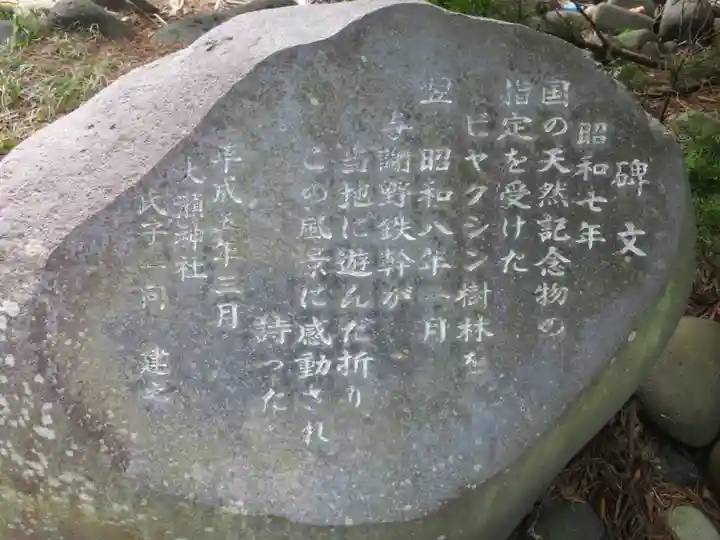 碑文
昭和七年
国の天然記念物の
指定を受けた
ビャクシン樹林を
翌 昭和八年一月
与謝野鉄幹が
当地に遊んだ折り
この風景に感動され
詩った
平成五年三月
大瀬神社
氏子一同 建之